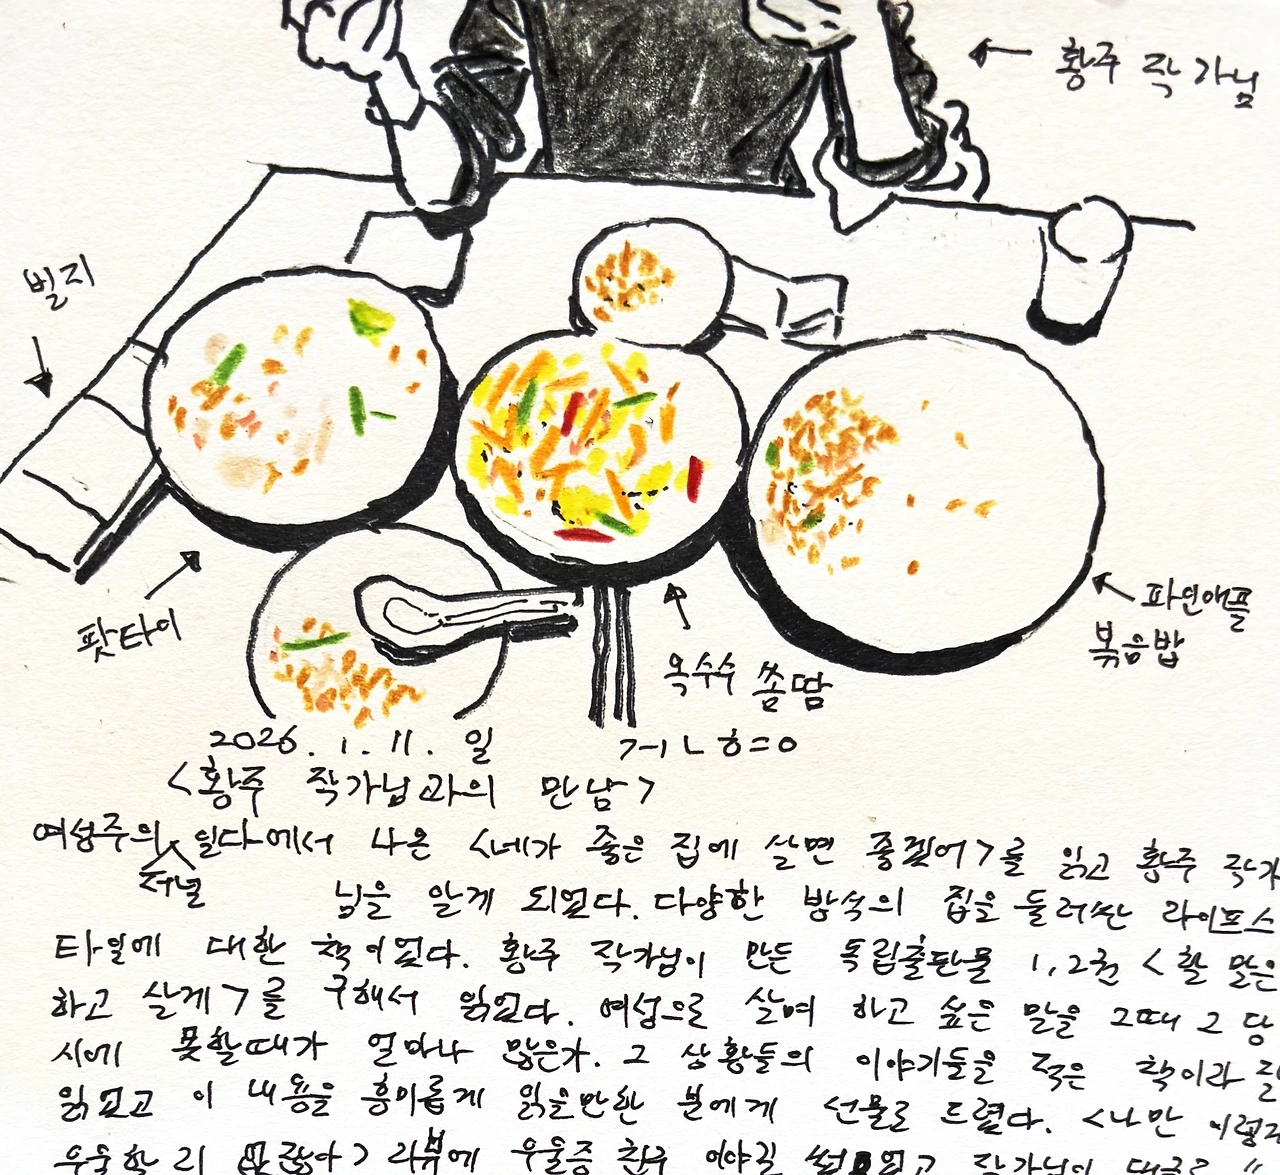 ← 황주 작가님
빌지
팟타이
옥수수 쏨땀
파인애플
볶음밥
2026. 1. 11. 일
<황주 작가님과의 만남>
여성주의 저널 일다에서 나온 <네가 좋은 집에 살면 좋겠어>를 읽고 황주 작가
님을 알게 되었다. 다양한 방식의 집을 둘러싼 라이프스
타일에 대한 책이었다. 황주 작가님이 만든 독립출판물 1, 2권 <할 말은
하고 살게>를 구해서 읽었다. 여성으로 살며 하고 싶은 말을 그때 그 당
시에 못할때가 얼마나 많은가. 그 상황들의 이야기들을 적은 책이라 잘
읽었고 이 내용을 흥미롭게 읽을만한 분에게 선물로 드렸다. <나만 이렇게
우울할 리 없잖아> 리뷰에 우울증 친구 이야길 썼었고 작가님이 댓글로